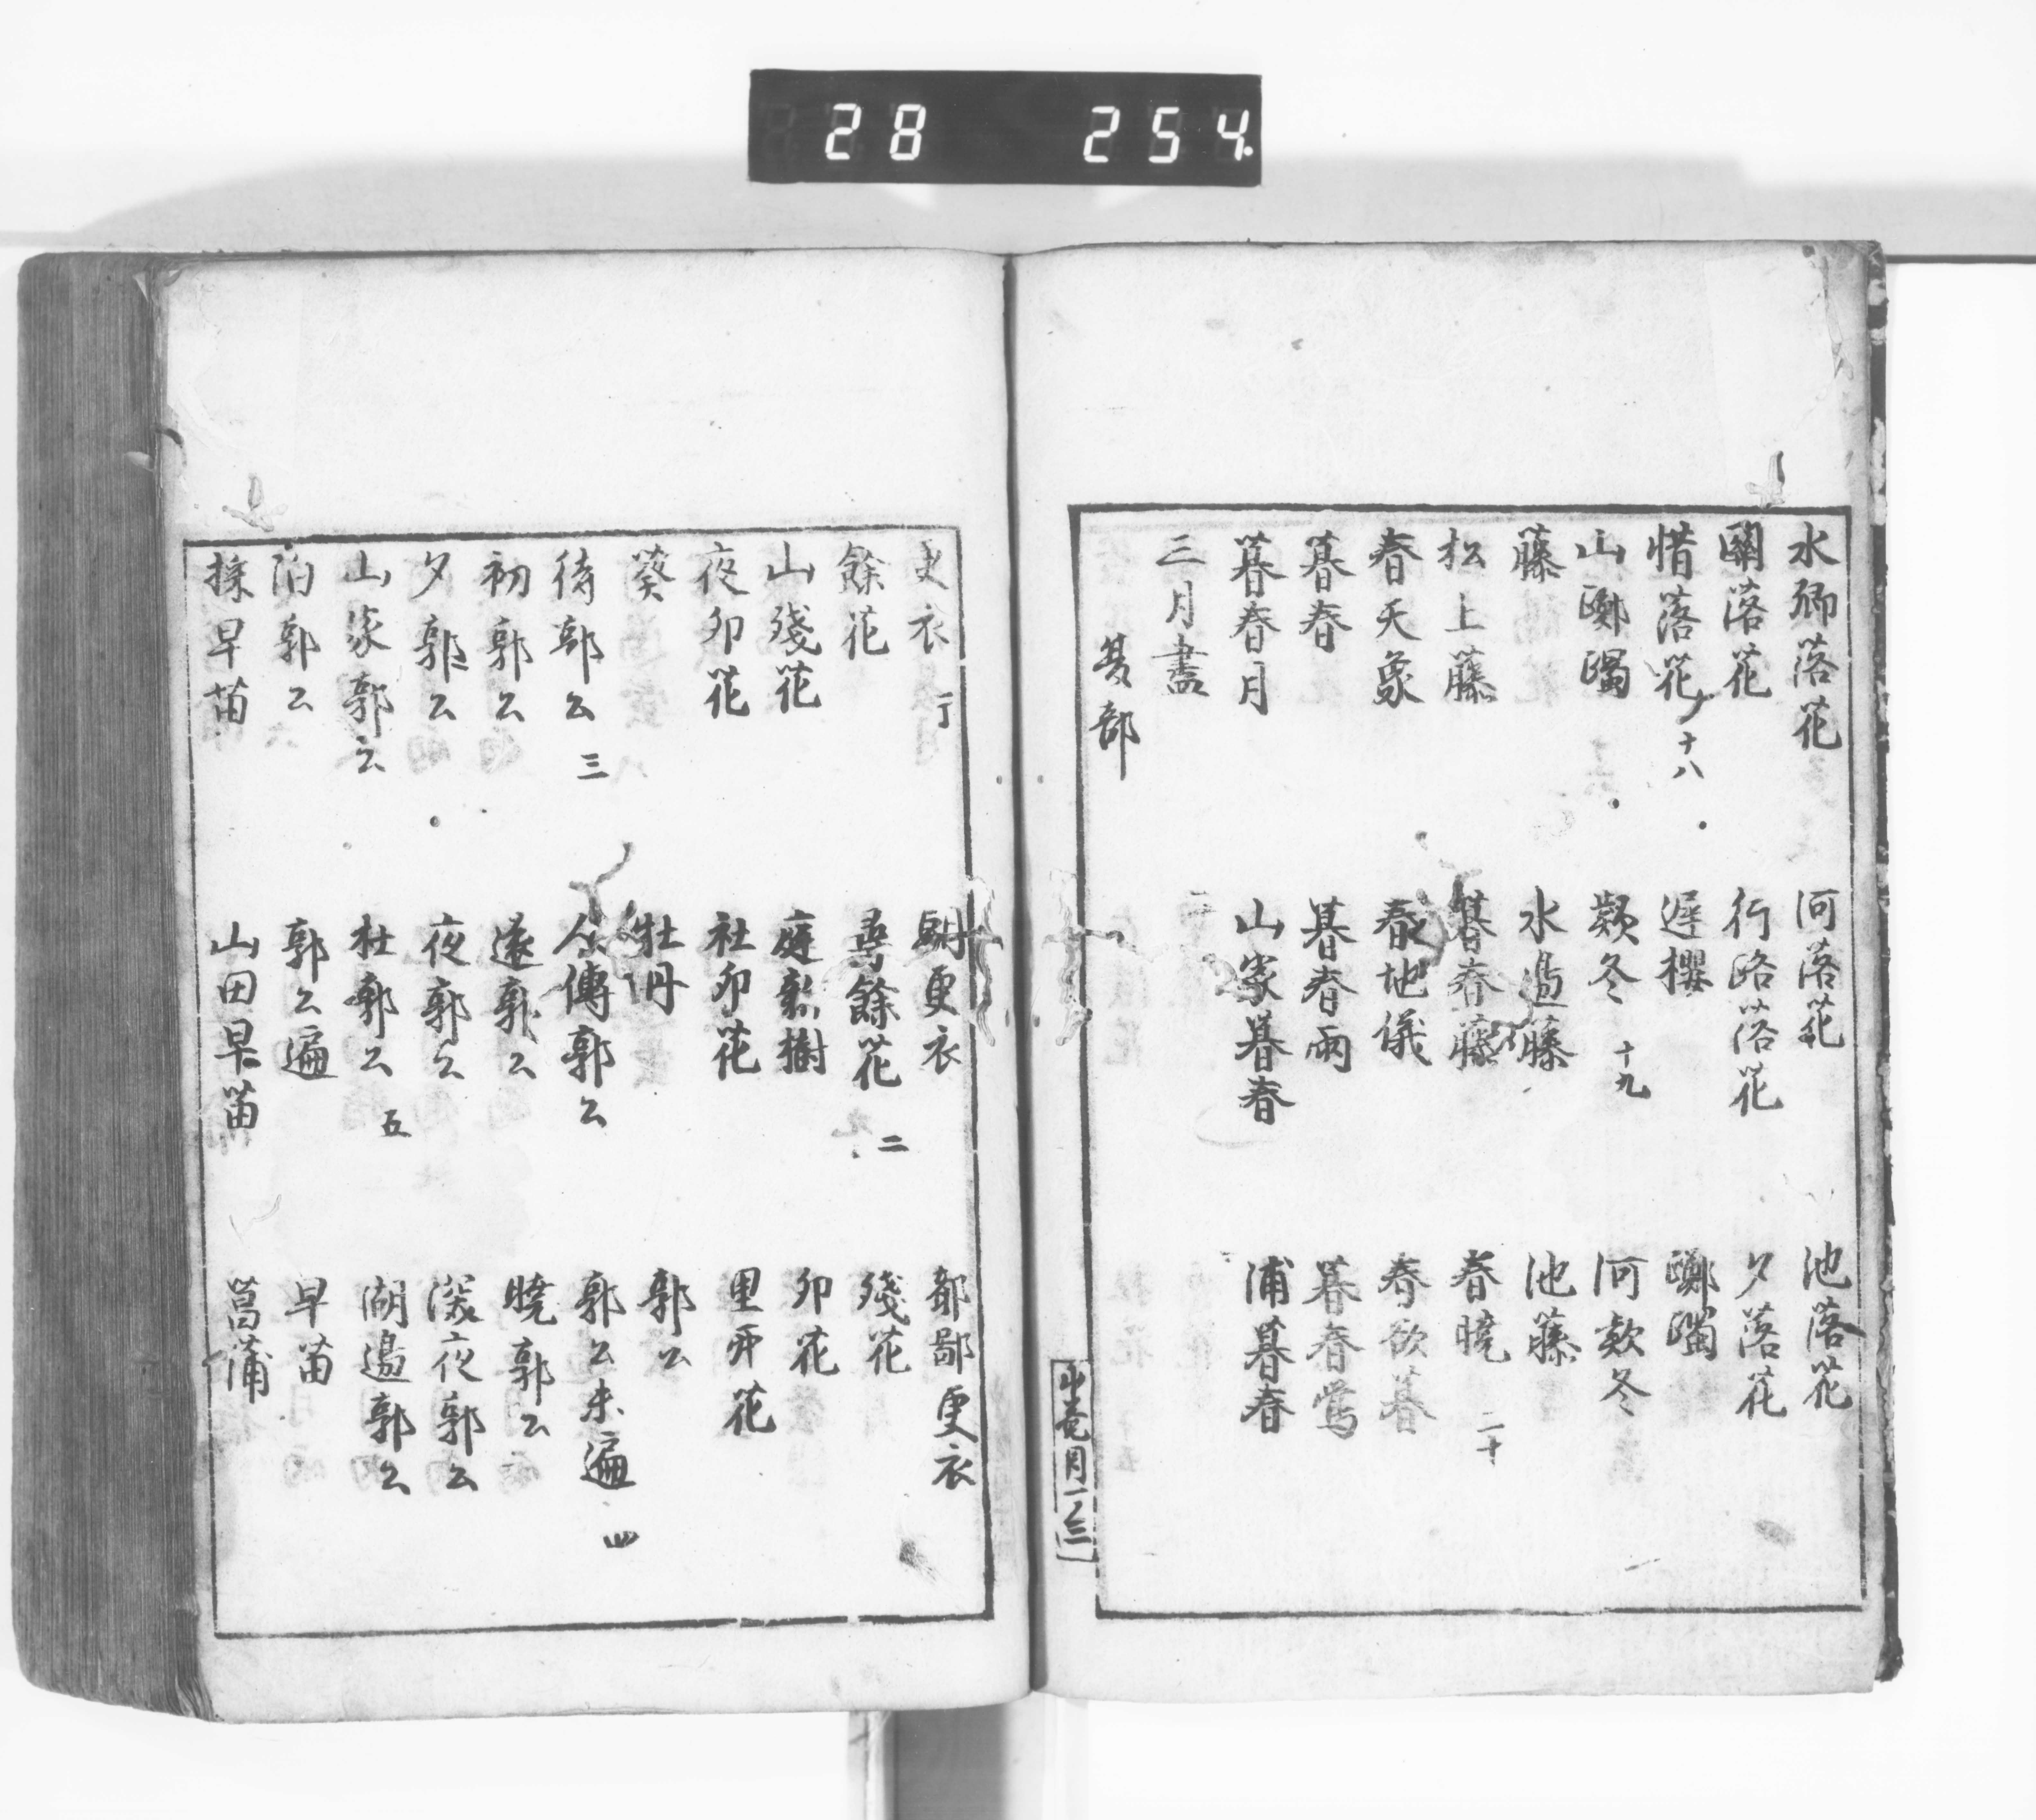 28 254.
水郷落花 河落花 池落花
關落花 行路落花 夕落花
惜落花 十八 遅櫻 躑躅
山躑躅 欵冬 十九 河欵冬
藤 水邉藤 池藤
松上藤 暮春藤 春暁 二十
春天象 春地儀 春欲暮
暮春 暮春雨 暮春鶯
暮春月 山家暮春 浦暮春
三月盡
夏部
更衣 丁 朝更衣 都鄙更衣
餘花 尋餘花 二 殘花
山殘花 庭新樹 卯花
夜卯花 社卯花 里卯花
葵 牡丹 郭公
待郭公 三 人傳郭公 郭公未遍 四
初郭公 遂郭公 暁郭公
夕郭公 夜郭公 深夜郭公
山家郭公 杜郭公 五 湖邉郭公
泊郭公 郭公遍 早苗
採早苗 山田早苗 菖蒲